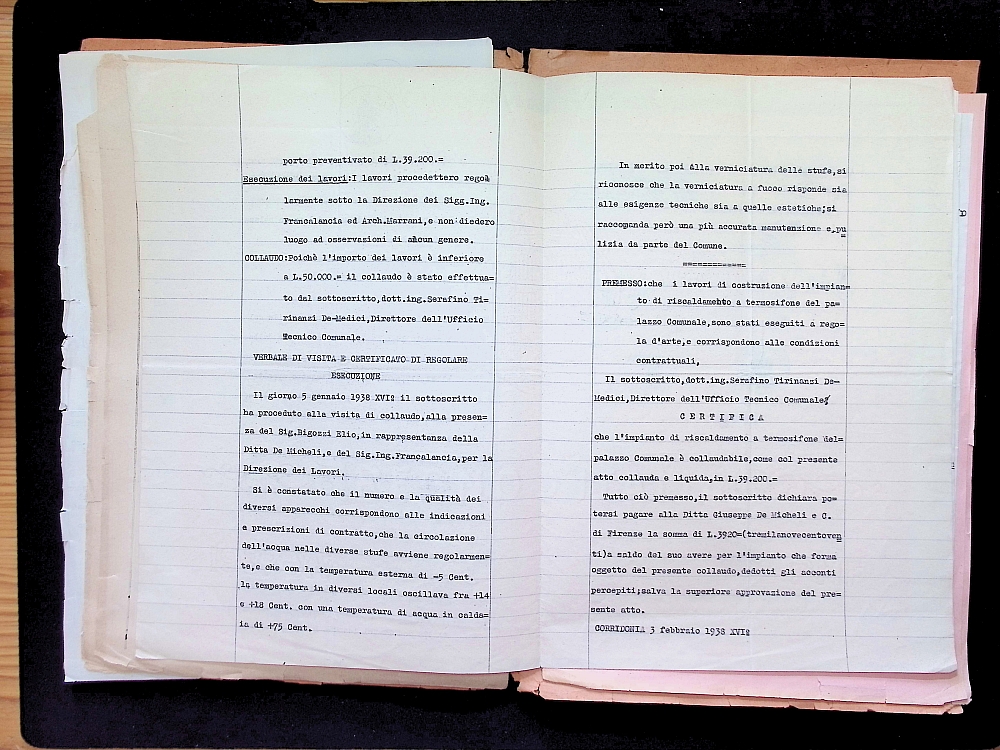 porto preventivato di L.39.200.=
Esecuzione dei lavori:I lavori procedettero regol
larmente sotto la Direzione dei Sigg.Ing.
Francalancia ed Arch.Marrani,e non diedero
luogo ad osservazioni di alcun genere.
COLLAUDO:Poichè l'importo dei lavori è inferiore
a L.50.000.= il collaudo è stato effettua=
to dal sottoscritto,dott.ing.Serafino Ti-
rinanzi De-Medici,Direttore dell'Ufficio
Tecnico Comunale.
VERBALE DI VISITA E CERTIFICATO DI REGOLARE
ESECUZIONE
Il giorno 5 gennaio 1938 XVIº il sottoscritto
ha proceduto alla visita di collaudo,alla presen=
za del Sig.Bigozzi Elio,in rappresentanza della
Ditta De Micheli,e del Sig.Ing.Francalancia,per la
Direzione dei Lavori.
Si è constatato che il numero e la qualità dei
diversi apparecchi corrispondono alle indicazioni
e prescrizioni di contratto,che la circolazione
dell'acqua nelle diverse stufe avviene regolarmen=
te,e che con la temperatura esterna di -5 Cent.
la temperatura in diversi locali oscillava fra +14
e +18 Cent. con una temperatura di acqua in calda=
ia di +75 Cent.
In merito poi alla verniciatura delle stufe,si
riconosce che la verniciatura a fuoco risponde sia
alle esigenze tecniche sia a quelle estetiche;si
raccomanda però una più accurata manutenzione e,pu
lizia da parte del Comune.
============
PREMESSO:che i lavori di costruzione dell'impian=
to di riscaldamento a termosifone del pa=
lazzo Comunale,sono stati eseguiti a rego=
la d'arte,e corrispondono alle condizioni
contrattuali,
Il sottoscritto,dott.ing.Serafino Tirinanzi De-
Medici,Direttore dell'Ufficio Tecnico Comunale,
C E R T I F I C A
che l'impianto di riscaldamento a termosifone del=
palazzo Comunale è collaudabile,come col presente
atto collauda e liquida,in L.39.200.=
Tutto ciò premesso,il sottoscritto dichiara po=
tersi pagare alla Ditta Giuseppe De Micheli e C.
di Firenze la somma di L.3920=(tremilanovecentoven
ti)a saldo del suo avere per l'impianto che forma
oggetto del presente collaudo,dedotti gli acconti
percepiti;salva la superiore approvazione del pre=
sente atto.
CORRIDONIA 3 febbraio 1938 XVIº